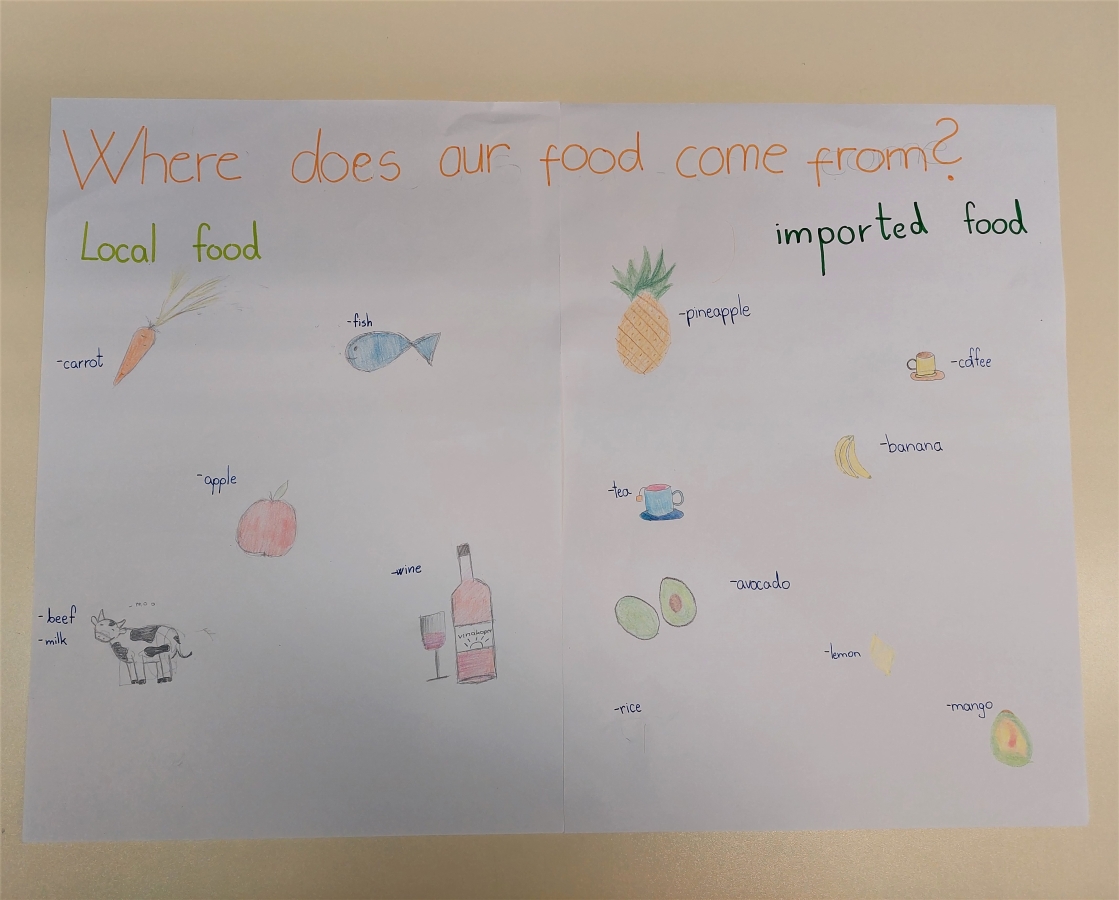 Where does our food come from?
Local food
-carrot
-fish
-apple
-wine
-beef
-milk
-moo
vinakoper
imported food
-pineapple
-coffee
-banana
-tea
-avocado
-lemon
-rice
-mango